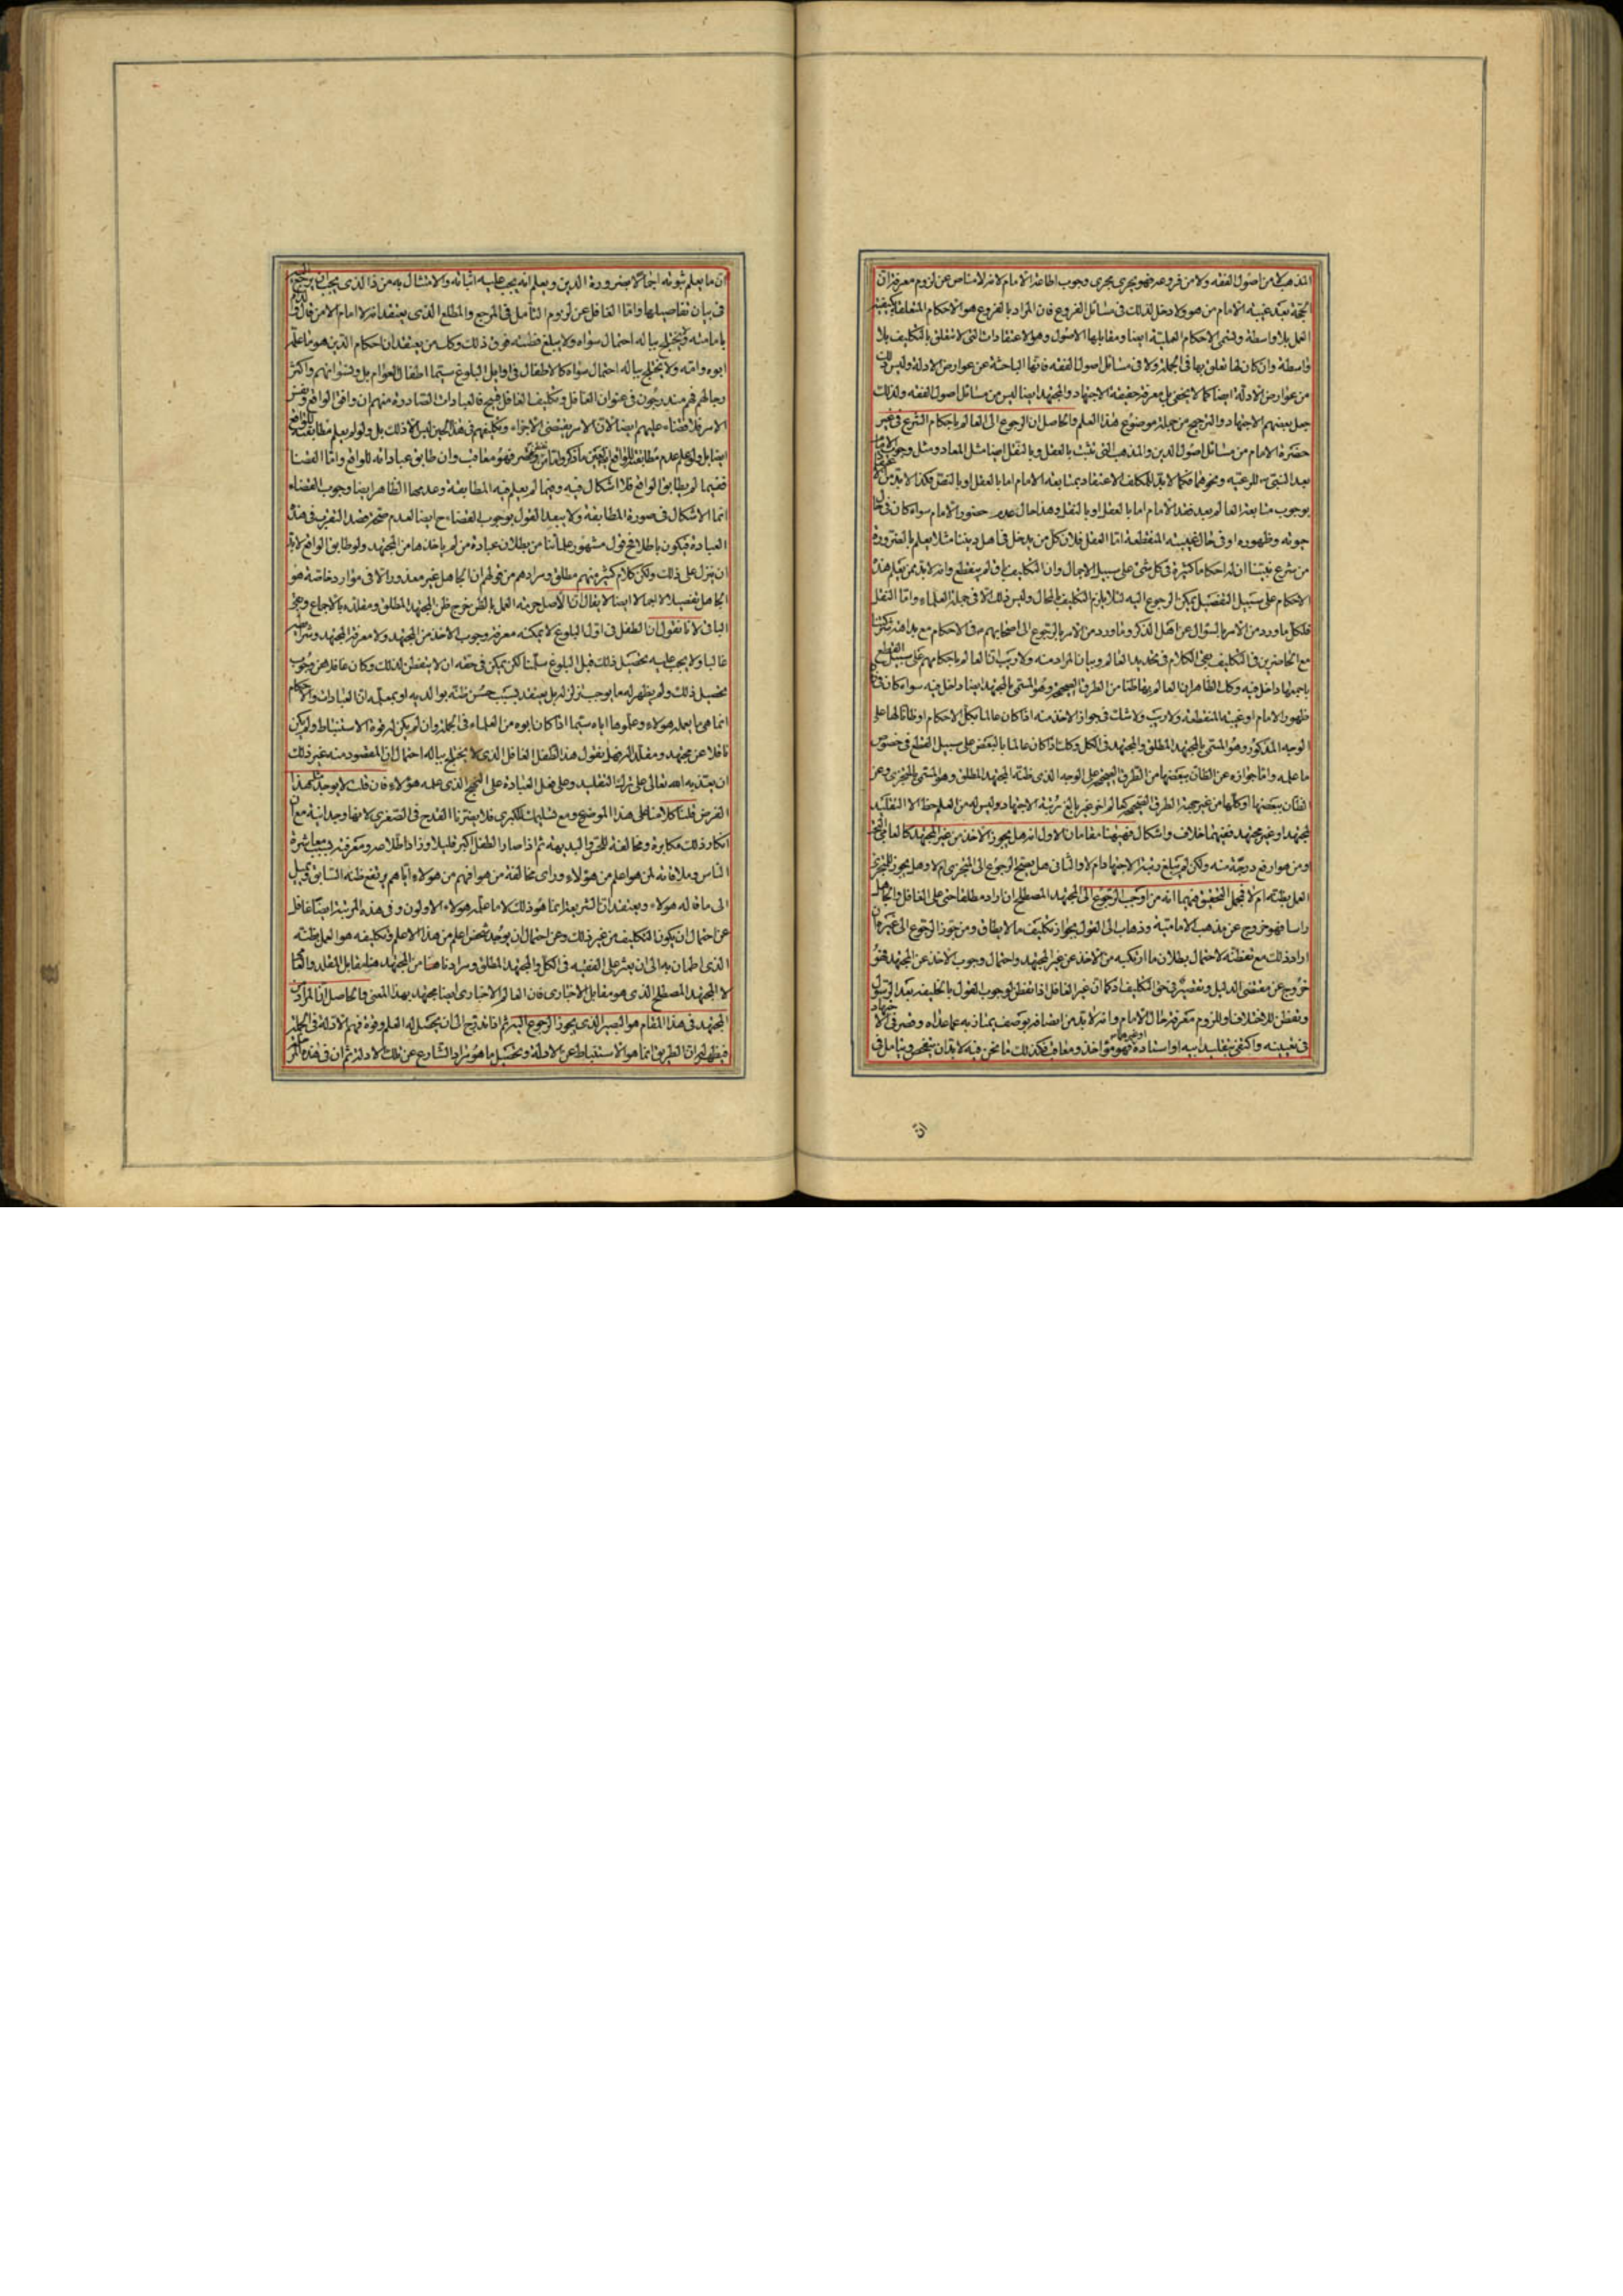 المذهب لا من اصول الفقه ولا من فروعه فهو يجرى مجرى وجوب اطاعة الامام لانه لا مناص عن لزوم معرفة ان
الحجة بعد غيبة الامام من هو ولا دخل لذلك فى مسائل الفروع فان المراد بالفروع هو الاحكام المتعلقة بكيفية
العمل بلا واسطة وتسمى الاحكام العملية ايضا ومقابلها الاصول وهو الاعتقادات التى لا تتعلق بالتكليف بلا
واسطة وان كان لها تعلق بها فى الجملة ولا فى مسائل اصول الفقه فانها الباحثة عن عوارض الادلة وليس ذلك
من عوارض الادلة ايضا كما لا يخفى بل معرفة حقيقة الاجتهاد والمجتهد ايضا ليس من مسائل اصول الفقه ولذلك
جعل بعضهم الاجتهاد والترجيح من جملة موضوع هذا العلم والحاصل ان الرجوع الى العالم باحكام الشرع فى غير
حضرة الامام من مسائل اصول الدين والمذهب التى تثبت بالعقل وبالنقل ايضا مثل المعاد ومثل وجوب الامام
بعد النبى للرعية ونحوهما فكما لا بد للمكلف الاعتقاد بمتابعة الامام اما بالعقل او بالنقل فكذا لا بد من
بوجوب متابعة العالم بعد فقد الامام اما بالعقل او بالنقل وهذا حال عدم حضور الامام سواء كان فى حال
حيوته وظهوره او فى حال الغيبة المنقطعة اما العقل فلان كل من يدخل فى اهل ديننا مثلا يعلم بالضرورة
من شرع نبينا ان له احكاما كثيرة فى كل شئ على سبيل الاجمال وان التكليف باق لم ينقطع وانه لا بد ممن يعلم هذه
الاحكام على سبيل التفصيل يمكن الرجوع اليه لئلا يلزم التكليف بالمحال وليس ذلك الا فى جملة العلماء واما النقل
فلكل ما ورد من الامر بالسؤال عن اهل الذكر وما ورد من الامر بالرجوع الى اصحابهم فى الاحكام مع بداهة شركتنا
مع الحاضرين فى التكليف بقى الكلام فى تحديد العالم وبيان المراد منه ولا ريب ان العالم باحكامهم على سبيل القطع
باجمعها داخل فيه وكذا الظاهر ان العالم بها ظنا من الطرق الصحيحة وهو المسمى بالمجتهد ايضا داخل فيه سواء كان فى حال
ظهور الامام او غيبته المنقطعة ولا ريب ولا شك فى جواز الاخذ منه اذا كان عالما بكل الاحكام او ظانا لها على
الوجه المذكور وهو المسمى بالمجتهد المطلق والمجتهد فى الكل وكذا اذا كان عالما بالبعض على سبيل القطع فى خصوص
ما علمه واما جوازه عن الظان ببعضها من الطرق الصحيحة على الوجه الذى ظنه المجتهد المطلق وهو المسمى بالمتجزى وعن
الظان ببعضها او كلها من غير جهة الطرق الصحيحة كما لو اخبر غير بالغ مرتبة الاجتهاد وليس له من العلم حظ الا التقليد
لمجتهد او غير مجتهد ففيهما خلاف واشكال فهيهنا مقامان الاول انه هل يجوز الاخذ من غير المجتهد كالعامى البحت
ومن هو ارفع درجة منه ولكن لم يبلغ رتبة الاجتهاد ام لا والثانى هل يصح الرجوع الى المتجزى ام لا وهل يجوز للمتجزى
العمل بظنه ام لا فمجمل التحقيق فيهما انه من اوجب الرجوع الى المجتهد المصطلح ان اراد مطلقا حتى على الغافل والجاهل
راسا فهو خروج عن مذهب الامامية وذهاب الى القول بجواز تكليف ما لا يطاق ومن جوز الرجوع الى غيره ان
اراد ذلك مع تفطنه لاحتمال بطلان ما ارتكبه من الاخذ عن غير المجتهد واحتمال وجوب الاخذ عن المجتهد فهو
خروج عن مقتضى الدليل وتقصير فى حق التكليف اذ كما ان غير الغافل اذا تفطن لوجوب القول بالخليفة بعد الرسول
وتفطن للاختلاف وللزوم معرفة حال الامام وانه لا بد من اتصافه بوصف يمتاز به عما عداه وقصر فى الاجتهاد
فى تعيينه واكتفى بتقليد ابيه او استاده او غيرهما فهو مؤاخذ ومعاقب فكذلك ما نحن فيه لا بد ان يتفحص ويتامل فى
ان
ان ما يعلم ثبوته اجمالا بضرورة الدين ويعلم انه يجب عليه اتيانه والامتثال به من ذا الذى يجب ان يرجع اليه
فى بيان تفاصيلها واما الغافل عن لزوم التامل فى المرجع والمطلع الذى يعتقد انه لا امام الا من قال
بامامته ولا يختلج بباله احتمال سواه ولا يبلغ فطنته فوق ذلك وكذلك من يعتقد ان احكام الدين هو ما علمه
ابوه وامه ولا يختلج بباله احتمال سواه كالاطفال فى اوايل البلوغ سيما اطفال العوام بل ونسوانهم واكثر
رجالهم فهم مندرجون فى عنوان الغافل وتكليف الغافل قبيح فالعبادات الصادرة منهم ان وافق الواقع ونفس
الامر فلا قضاء عليهم ايضا لان الامر يقتضى الاجزاء وتكليفهم فى هذا الحين ليس الا ذلك بل ولو لم يعلم مطابقته للواقع
ايضا بل ولو علم عدم مطابقته للواقع ما ذكر واما من قصر فهو معاقب وان طابق عباداته للواقع واما القضاء
ففيما لم يطابق الواقع فلا اشكال فيه وفيما لم يعلم فيه المطابقة وعدمها الظاهر ايضا وجوب القضاء
انما الاشكال فى صورة المطابقة ولا يبعد القول بوجوب القضاء ح ايضا لعدم صحة قصد التقرب فى هذه
العبادة فيكون باطلا فقول مشهور علمائنا من بطلان عبادة من لم ياخذها من المجتهد ولو طابق الواقع لا بد
ان ينزل على ذلك ولكن كلام كثير منهم مطلق ومرادهم من قولهم ان الجاهل غير معذور الا فى موارد خاصة هو
الجاهل تفصيلا لا اجمالا ايضا لا يقال ان الاصل حرمة العمل بالظن خرج ظن المجتهد المطلق ومقلده بالاجماع وبقى
الباقى لانا نقول ان الطفل فى اول البلوغ لا يمكنه معرفة وجوب الاخذ من المجتهد ولا معرفة المجتهد وشرائطه
غالبا ولا يجب عليه تحصيل ذلك قبل البلوغ سلمنا لكن يمكن فى حقه ان لا يتفطن لذلك وكان غافلا عن وجوب
تحصيل ذلك ولم يظهر له ما يوجب تزلزله بل يعتقد بسبب حسن ظنه بوالديه او بمعلمه ان العبادات والاحكام
انما هى ما يعمله هولاء وعلموها اياه سيما اذا كان ابوه من العلماء فى الجملة وان لم يكن له قوة الاستنباط ولم يكن
ناقلا عن مجتهد ومقلدا له فهل يقول هذا الطفل الغافل الذى لا يختلج بباله احتمال ان المقصود منه غير ذلك
ان يعذبه الله تعالى على ترك التقليد وعلى فعل العبادة على النهج الذى علمه هؤلاء فان قلت لا يوجد مثل هذا
الفرض قلنا كلامنا على هذا الموضع ومع تسليمك الكبرى فلا يضرنا القدح فى الصغرى لانها وجدانية مع ان
انكار ذلك مكابرة ومخالفة للحس والبديهة ثم اذا صار الطفل اكبر قليلا وزاد اطلاعه ومعرفته بسبب معاشرة
الناس وملاقاته لمن هو اعلم من هؤلاء وراى مخالفة من هو افهم من هولاء اياهم يرتفع ظنه السابق ويميل
الى ما قاله هولاء ويعتقد ان الشريعة انما هو ذلك لا ما علمه هولاء الاولون وفى هذه المرتبة ايضا غافل
عن احتمال ان يكون التكليف من غير ذلك وعن احتمال ان يوجد شخص اعلم من هذا الاعلم وتكليفه هو العمل بظنه
الذى اطمان به الى ان يعثر على الفقيه فى الكل والمجتهد المطلق ومرادنا هنا من المجتهد هنا مقابل المقلد والعامى
لا المجتهد المصطلح الذى هو مقابل الاخبارى فان العالم الاخبارى ايضا مجتهد بهذا المعنى والحاصل ان المراد من
المجتهد فى هذا المقام هو البصير الذى يجوز الرجوع اليه ثم اذا تدرج الى ان يحصل له العلم وقوة فهم الادلة فى الجملة
فيظهر له ان الطريق انما هو الاستنباط عن الادلة وتحصيل ما هو مراد الشارع عن تلك الادلة ثم ان فى هذه